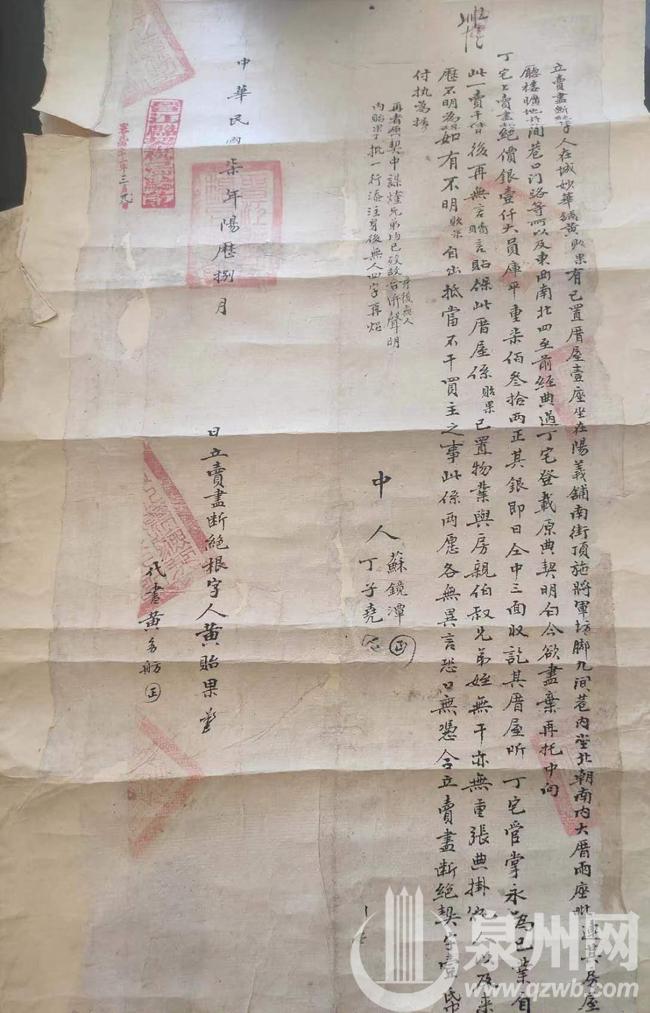 立賣盡斷絕根字人在城妙華鋪黃貽果有己置厝屋壹座坐在陽義鋪南街頂施將軍坊脚九間巷内坐北朝南内大厝兩座毗連其房屋
廳樓曠地井間巷口門路等所以及東西南北四至前經典過丁宅登載原典契明白今欲盡棄再托中向
丁宅上賣盡絕價銀壹仟大員庫平重柒佰叁拾兩正其銀即日仝中三面收訖其厝屋听丁宅管掌永為己業自
此一賣千休後再無言贖言貼保此厝屋係貽果己置物業與房親伯叔兄弟姪無干亦無重張典掛他人以及來
歷不明為碍如有不明貽果自出抵當不干買主之事此係兩愿各無異言恐口無憑今立賣盡斷絕契字壹紙
付执為炤
再者原契中謀煃兄弟均已歿故身後無人合併聲明
内貽果批一行添注身後無人四字再炤
中人
蘇鏡潭
丁子堯
中華民國柒年陽歷捌月 日立賣盡斷絕根字人黃貽果
代書黃
泉州网
www.qzwb.com